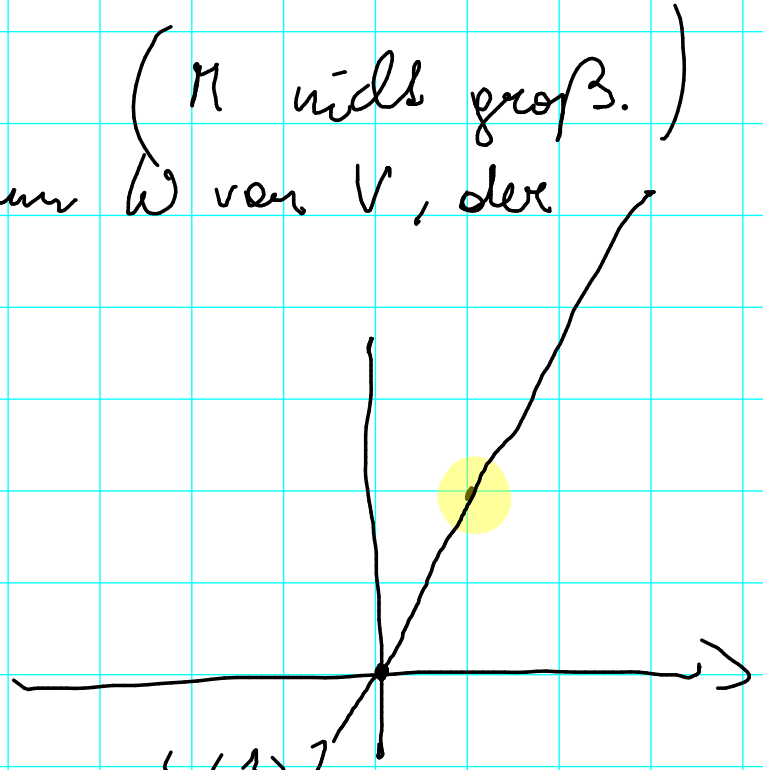 (M nicht groß.)
W von V, der